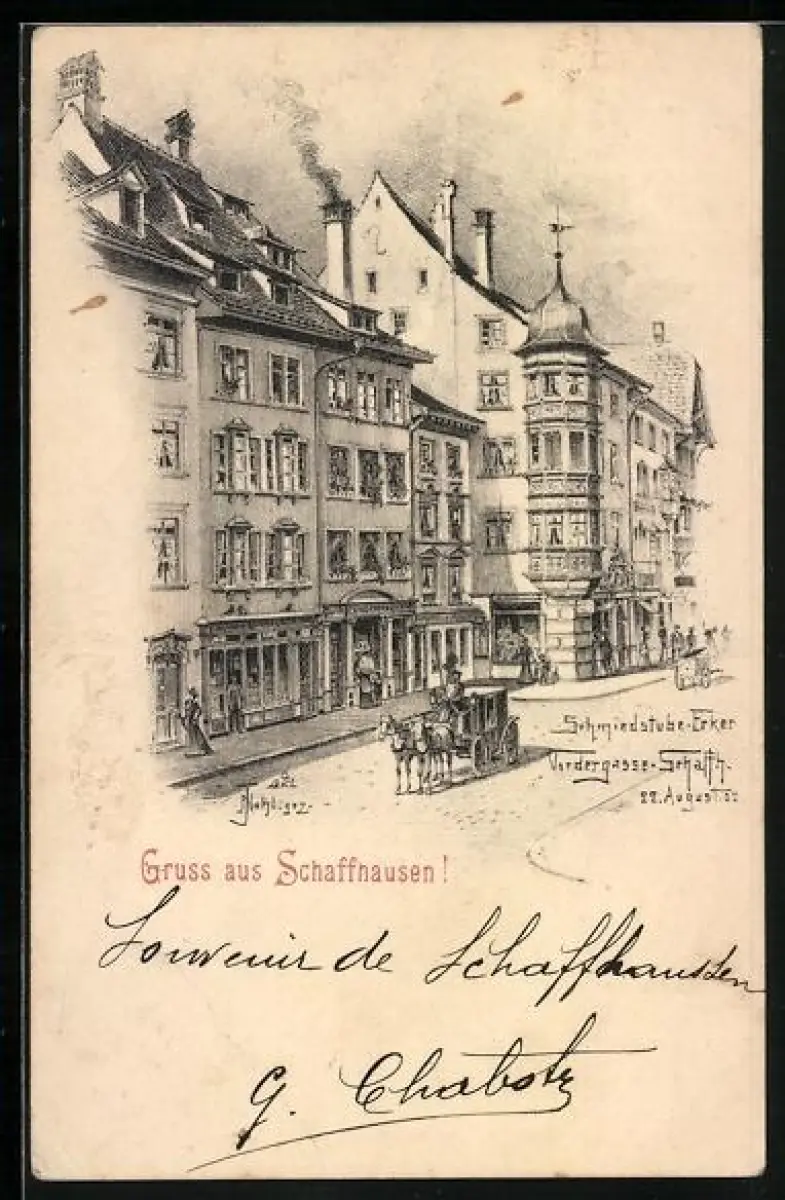 Schmiedstube-Erker
Vordergasse-Schaffh.
22. August.
Gruss aus Schaffhausen!
Souvenir de Schaffhausen
G.